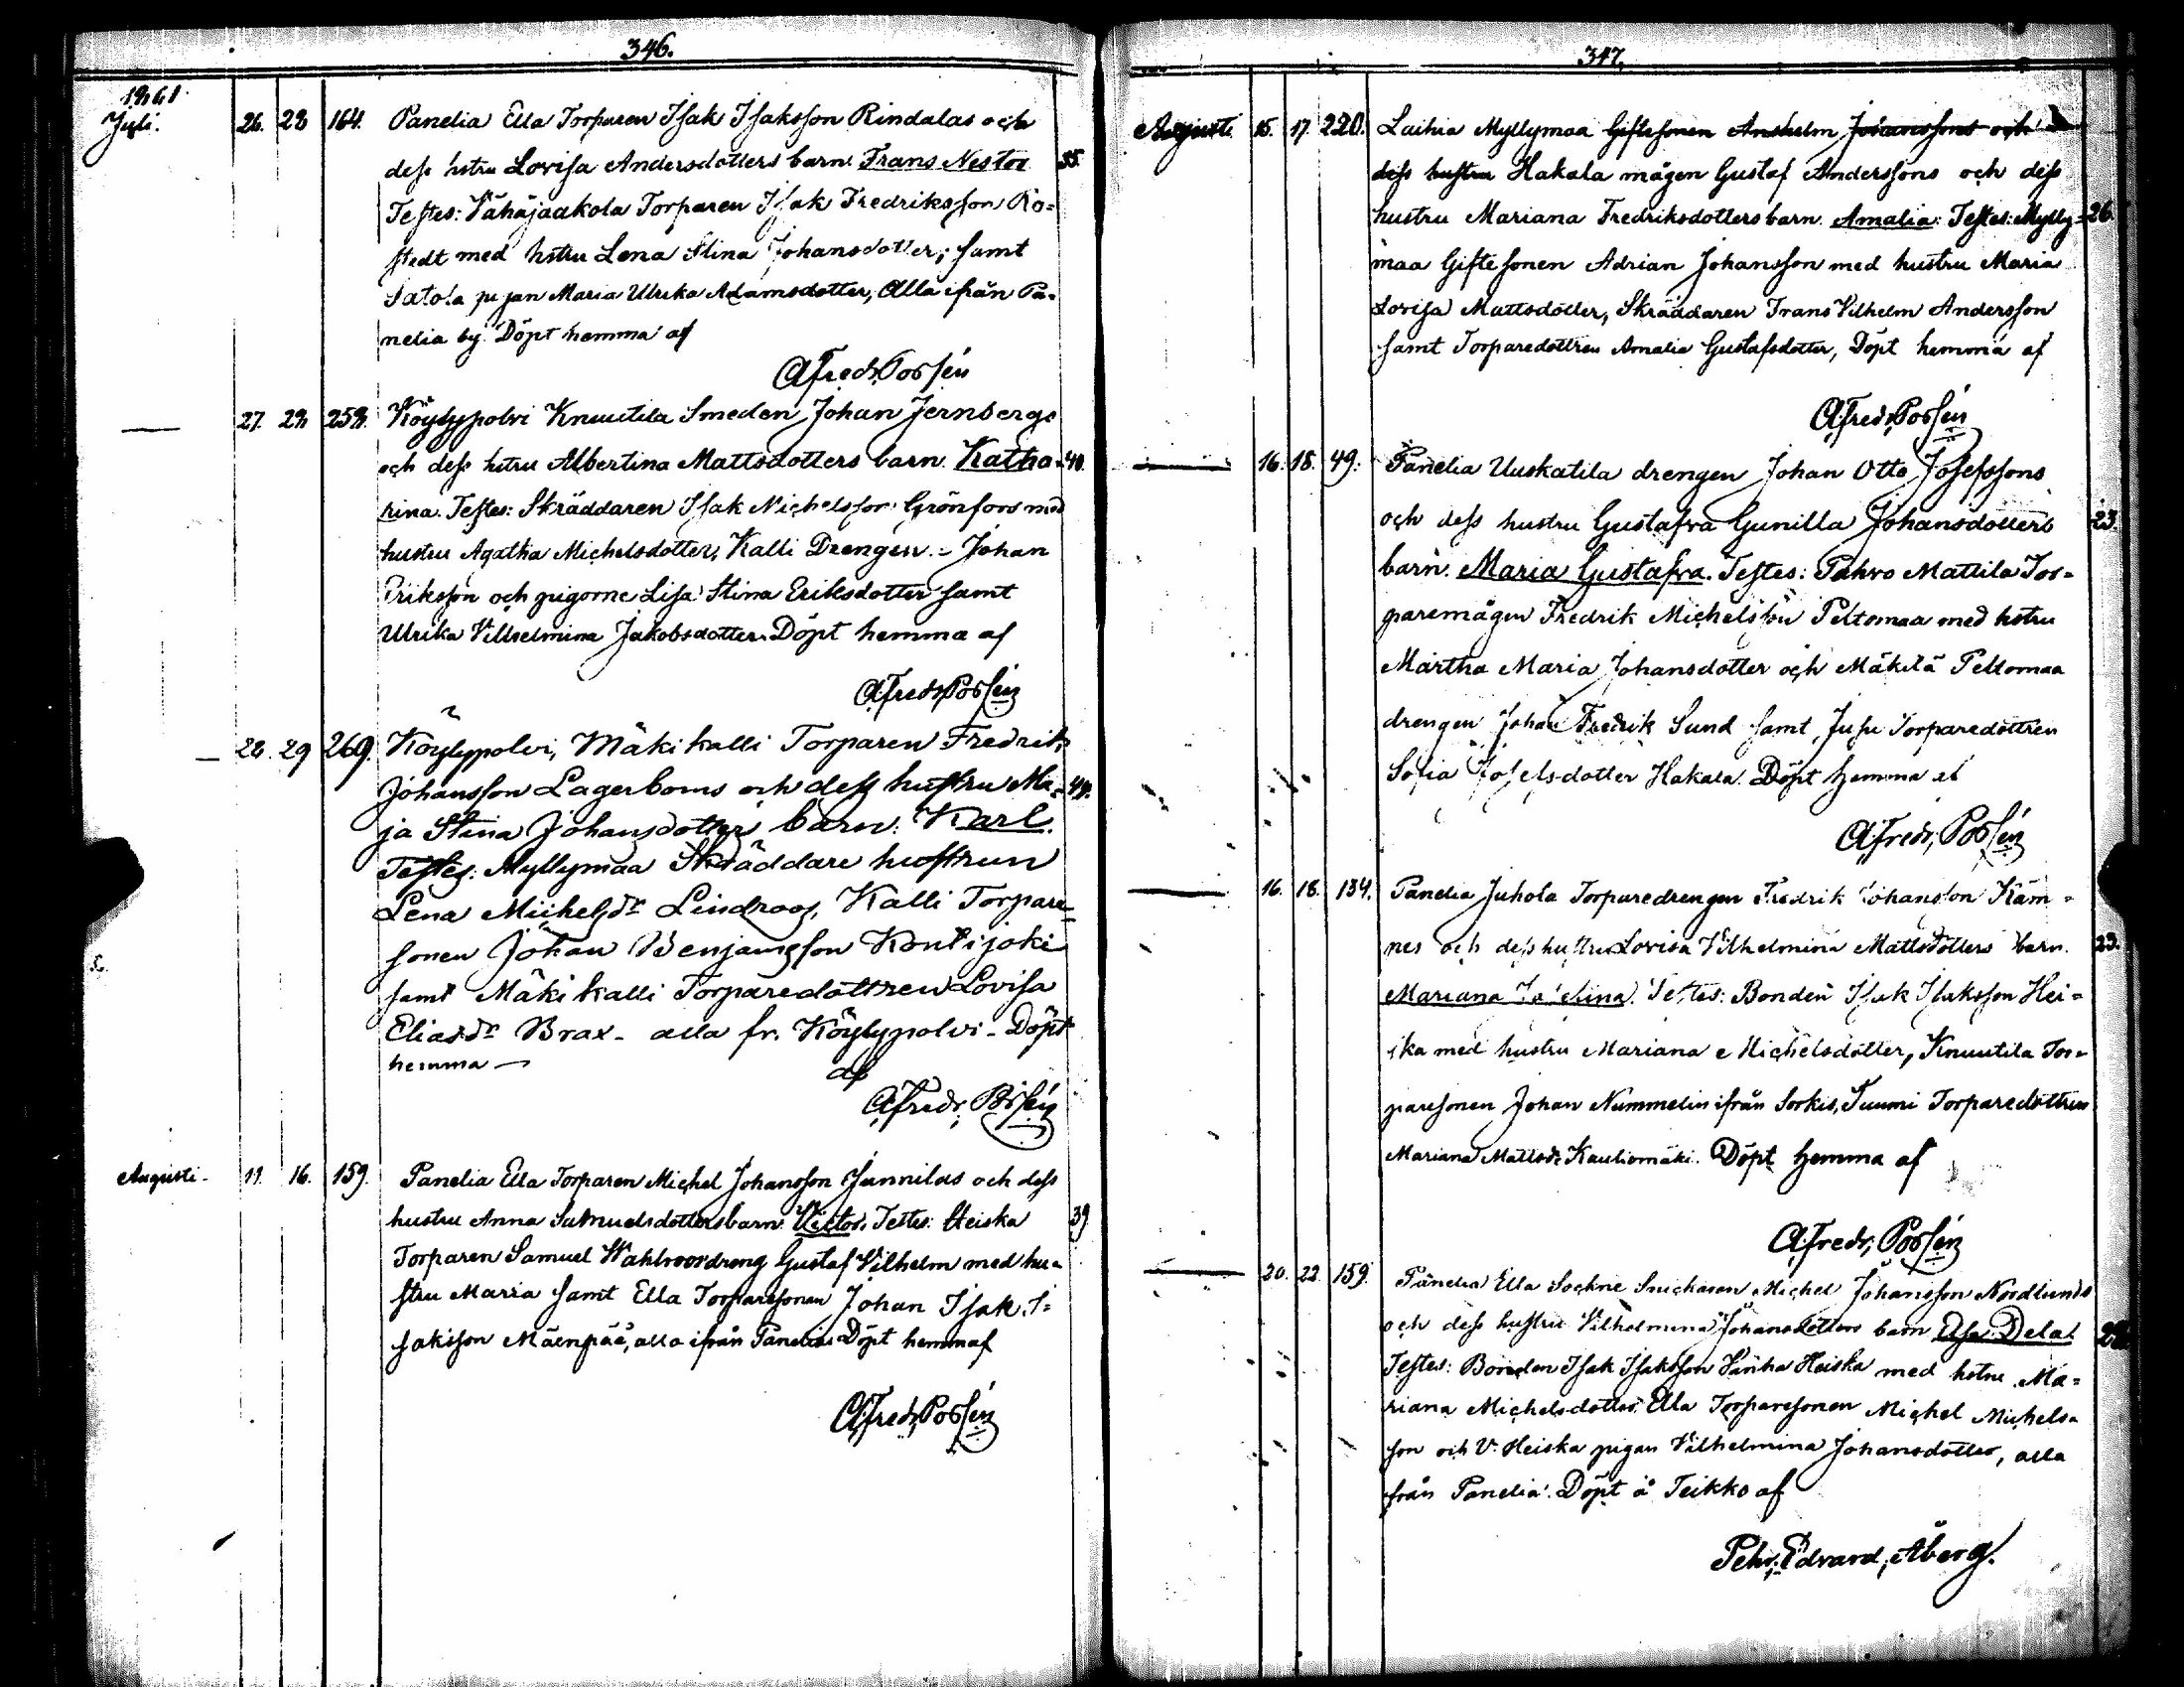 346.
1861
Juli. 26. 28 164. Panelia Ella Torparen Isak Isaksson Rindalas och
dess hstru Lovisa Andersdotters barn Frans Nestor 35.
Testes: Vähäjaakola Torparen Isak Fredriksson Ro=
stedt med hstru Lena Stina Johansdotter; samt
Satola pigan Maria Ulrika Adamsdotter, Alla ifrån Pa-
nelia by. Döpt hemma af
Alfred Possén
— 27. 28 258. Köylypolvi Knuutila Smeden Johan Jernbergs
och dess hstru Albertina Mattsdotters barn. Katha- 40.
rina. Testes: Skräddaren Isak Michelsson Grönfors med
hustru Agatha Michelsdotter, Kalli Drengen - Johan
Eriksson och pigorne Lisa Stina Eriksdotter samt
Ulrika Vilhelmina Jakobsdotter. Döpt hemma af
Alfred Possén
— 28. 29 269. Köylypolvi, Mäkikalli Torparen Fredrik
Johansson Lagerboms och dess hustru Ma= 44.
ja Stina Johansdotter barn: Karl.
Testes: Myllymaa Skräddare hustrun
Lena Michelsdr Lindroos, Kalli Torpare=
sonen Johan Benjamsson Kontijoki
samt Mäkikalli Torparedottren Lovisa
Eliasdr Brax - alla fr. Köylypolvi - Döpt
hemma —
af
Alfredr, Posén
Augusti. 11. 16. 159. Panelia Ella Torparen Michel Johansson Junnilas och dess
hustru Anna Samuelsdotters barn. Victor. Testes: Heiska 39
Torparen Samuel Wahlroos dreng Gustaf Vilhelm med hu=
stru Maria samt Ella Torparesonen Johan Isak I=
saksson Mäenpää, alla ifrån Panelia. Döpt hemma af
Alfred Possén
347.
Augusti. 15. 17. 220. Laihia Myllymaa Giftesonen Anshelm Johanssons och
dess hustru Hakala mågen Gustaf Anderssons och dess
hustru Mariana Fredriksdotters barn. Amalia: Testes: Mylly= 26.
maa Giftesonen Adrian Johansson med hustru Maria
Lovisa Mattsdotter, Skräddaren Frans Vilhelm Andersson
samt Torparedottren Amalia Gustafsdotter, Döpt hemma af
Alfred Possén
— 16. 18. 49. Panelia Uuskatila drengen Johan Otto Josefssons
och dess hustru Gustafva Gunilla Johansdotters 23.
barn. Maria Gustafva. Testes: Pahvo Mattila Tor=
paremågen Fredrik Michelsson Peltomaa med hstru
Martha Maria Johansdotter och Mäkilä Peltomaa
drengen Johan Fredrik Sund samt Jusu Torparedottren
Sofia Josefsdotter Hakala. Döpt hemma af
Alfredr, Possén
— 16. 18. 134. Panelia Juhola Torparedrengen Fredrik Johansson Käm=
nes och dess hustru Lovisa Vilhelmina Mattsdotters barn. 23.
Mariana Testes: Bonden Isak Isaksson Hei=
ska med hustru Mariana Michelsdotter, Knuutila Tor=
paresonen Johan Nummelin ifrån Sorkis, Tuumi Torparedottren
Mariana Mattsdr Kauliomäki. Döpt hemma af
Alfredr, Possén
— 20. 22 159. Panelia Ella Sockne Snickaren Michel Johansson Nordlunds
och dess hustru Vilhelmina Johansdotters barn
Testes: Bonden Isak Isaksson Vanha Heiska med hstru Ma=
riana Michelsdotter Ella Torparesonen Michel Michels=
son och V. Heiska pigan Vilhelmina Johansdotter, alla
från Panelia. Döpt å Teikko af
Pehr, Edvard, Åberg.